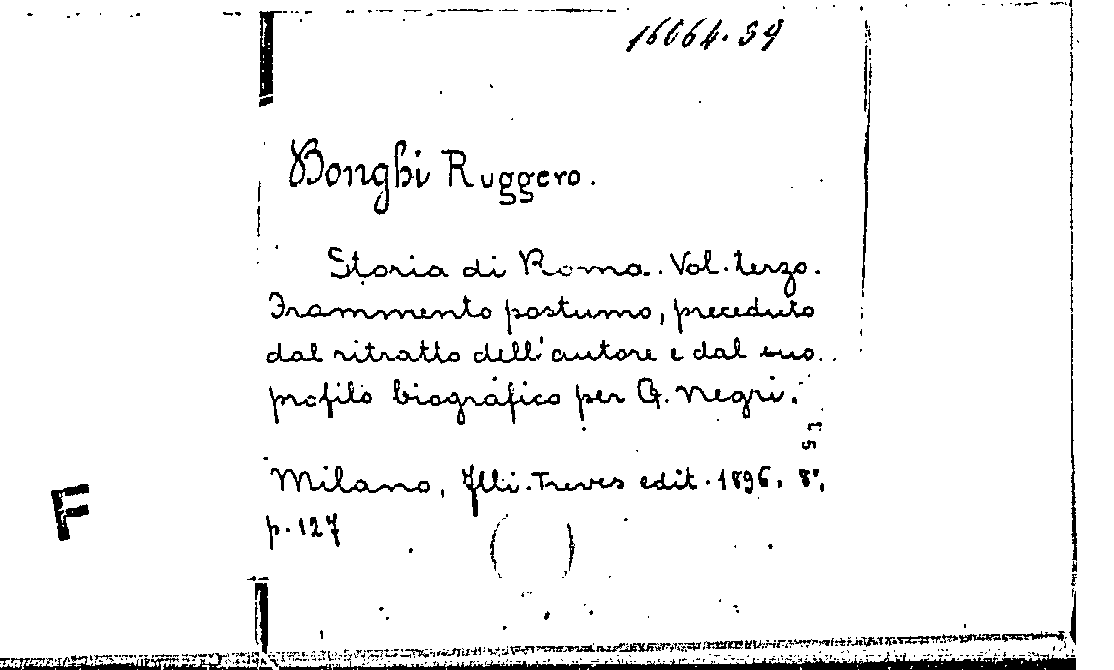 16064.59
Bonghi Ruggero.
Storia di Roma. Vol. terzo.
Frammento postumo, preceduto
dal ritratto dell'autore e dal suo
profilo biografico per G. Negri.
Milano, flli. Treves edit. 1896. 8°,
p. 127
( )
F